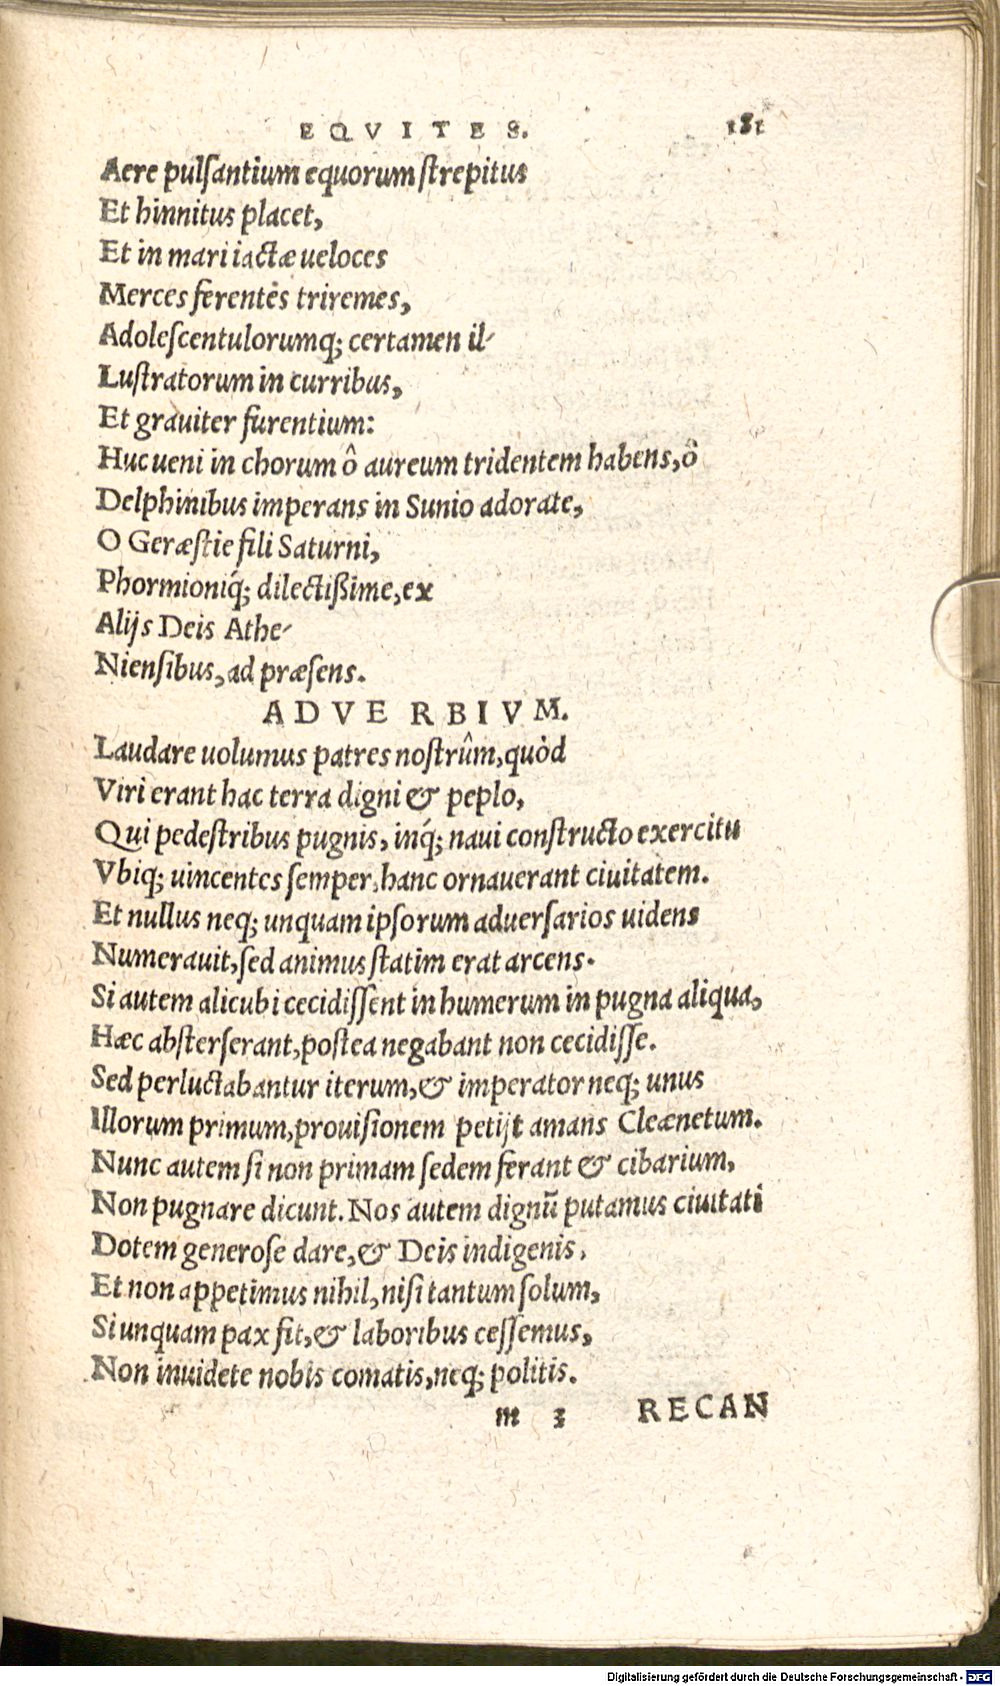 EQVITES. 181
Aere pulſantium equorum ſtrepitus
Et hinnitus placet,
Et in mari iactæ ueloces
Merces ferentes triremes,
Adoleſcentulorumq; certamen il-
Luſtratorum in curribus,
Et grauiter furentium:
Huc ueni in chorum ô aureum tridentem habens, ô
Delphinibus imperans in Sunio adorate,
O Geræſtie fili Saturni,
Phormioniq́; dilectißime, ex
Alijs Deis Athe-
Nienſibus, ad præſens.
ADVERBIVM.
Laudare uolumus patres noſtrûm, quòd
Viri erant hac terra digni & peplo,
Qui pedeſtribus pugnis, inq́; naui conſtructo exercitu
Vbiq; uincentes ſemper, hanc ornauerant ciuitatem.
Et nullus neq; unquam ipſorum aduerſarios uidens
Numerauit, ſed animus ſtatim erat arcens.
Si autem alicubi cecidiſſent in humerum in pugna aliqua,
Hæc abſterſerant, poſtea negabant non cecidiſſe.
Sed perluctabantur iterum, & imperator neq; unus
Illorum primum, prouiſionem petijt amans Cleænetum.
Nunc autem ſi non primam ſedem ferant & cibarium,
Non pugnare dicunt. Nos autem dignū putamus ciuitati
Dotem generoſe dare, & Deis indigenis.
Et non appetimus nihil, niſi tantum ſolum,
Si unquam pax fit, & laboribus ceſſemus,
Non inuidete nobis comatis, neq; politis.
m 3 RECAN
Digitalisierung gefördert durch die Deutsche Forschungsgemeinschaft - DFG